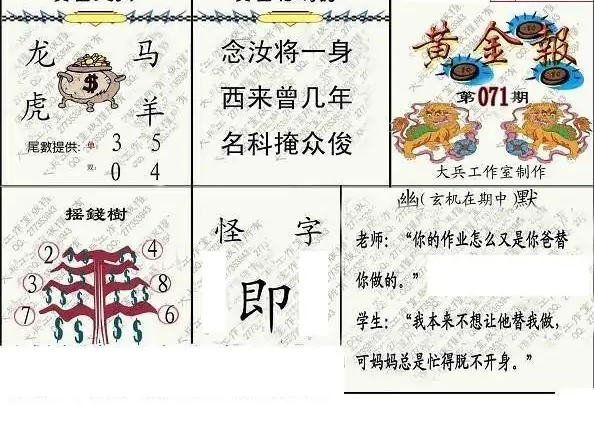 龙 马
虎 羊
尾數提供: 单: 3 5
双: 0 4
念汝将一身
西来曾几年
名科掩众俊
黄金報
第071期
大兵工作室制作
摇錢樹
2 4
3 8
7 6
怪 字
即
幽(玄机在期中)默
老师:“你的作业怎么又是你爸替
你做的。”
学生:“我本来不想让他替我做,
可妈妈总是忙得脱不开身。”